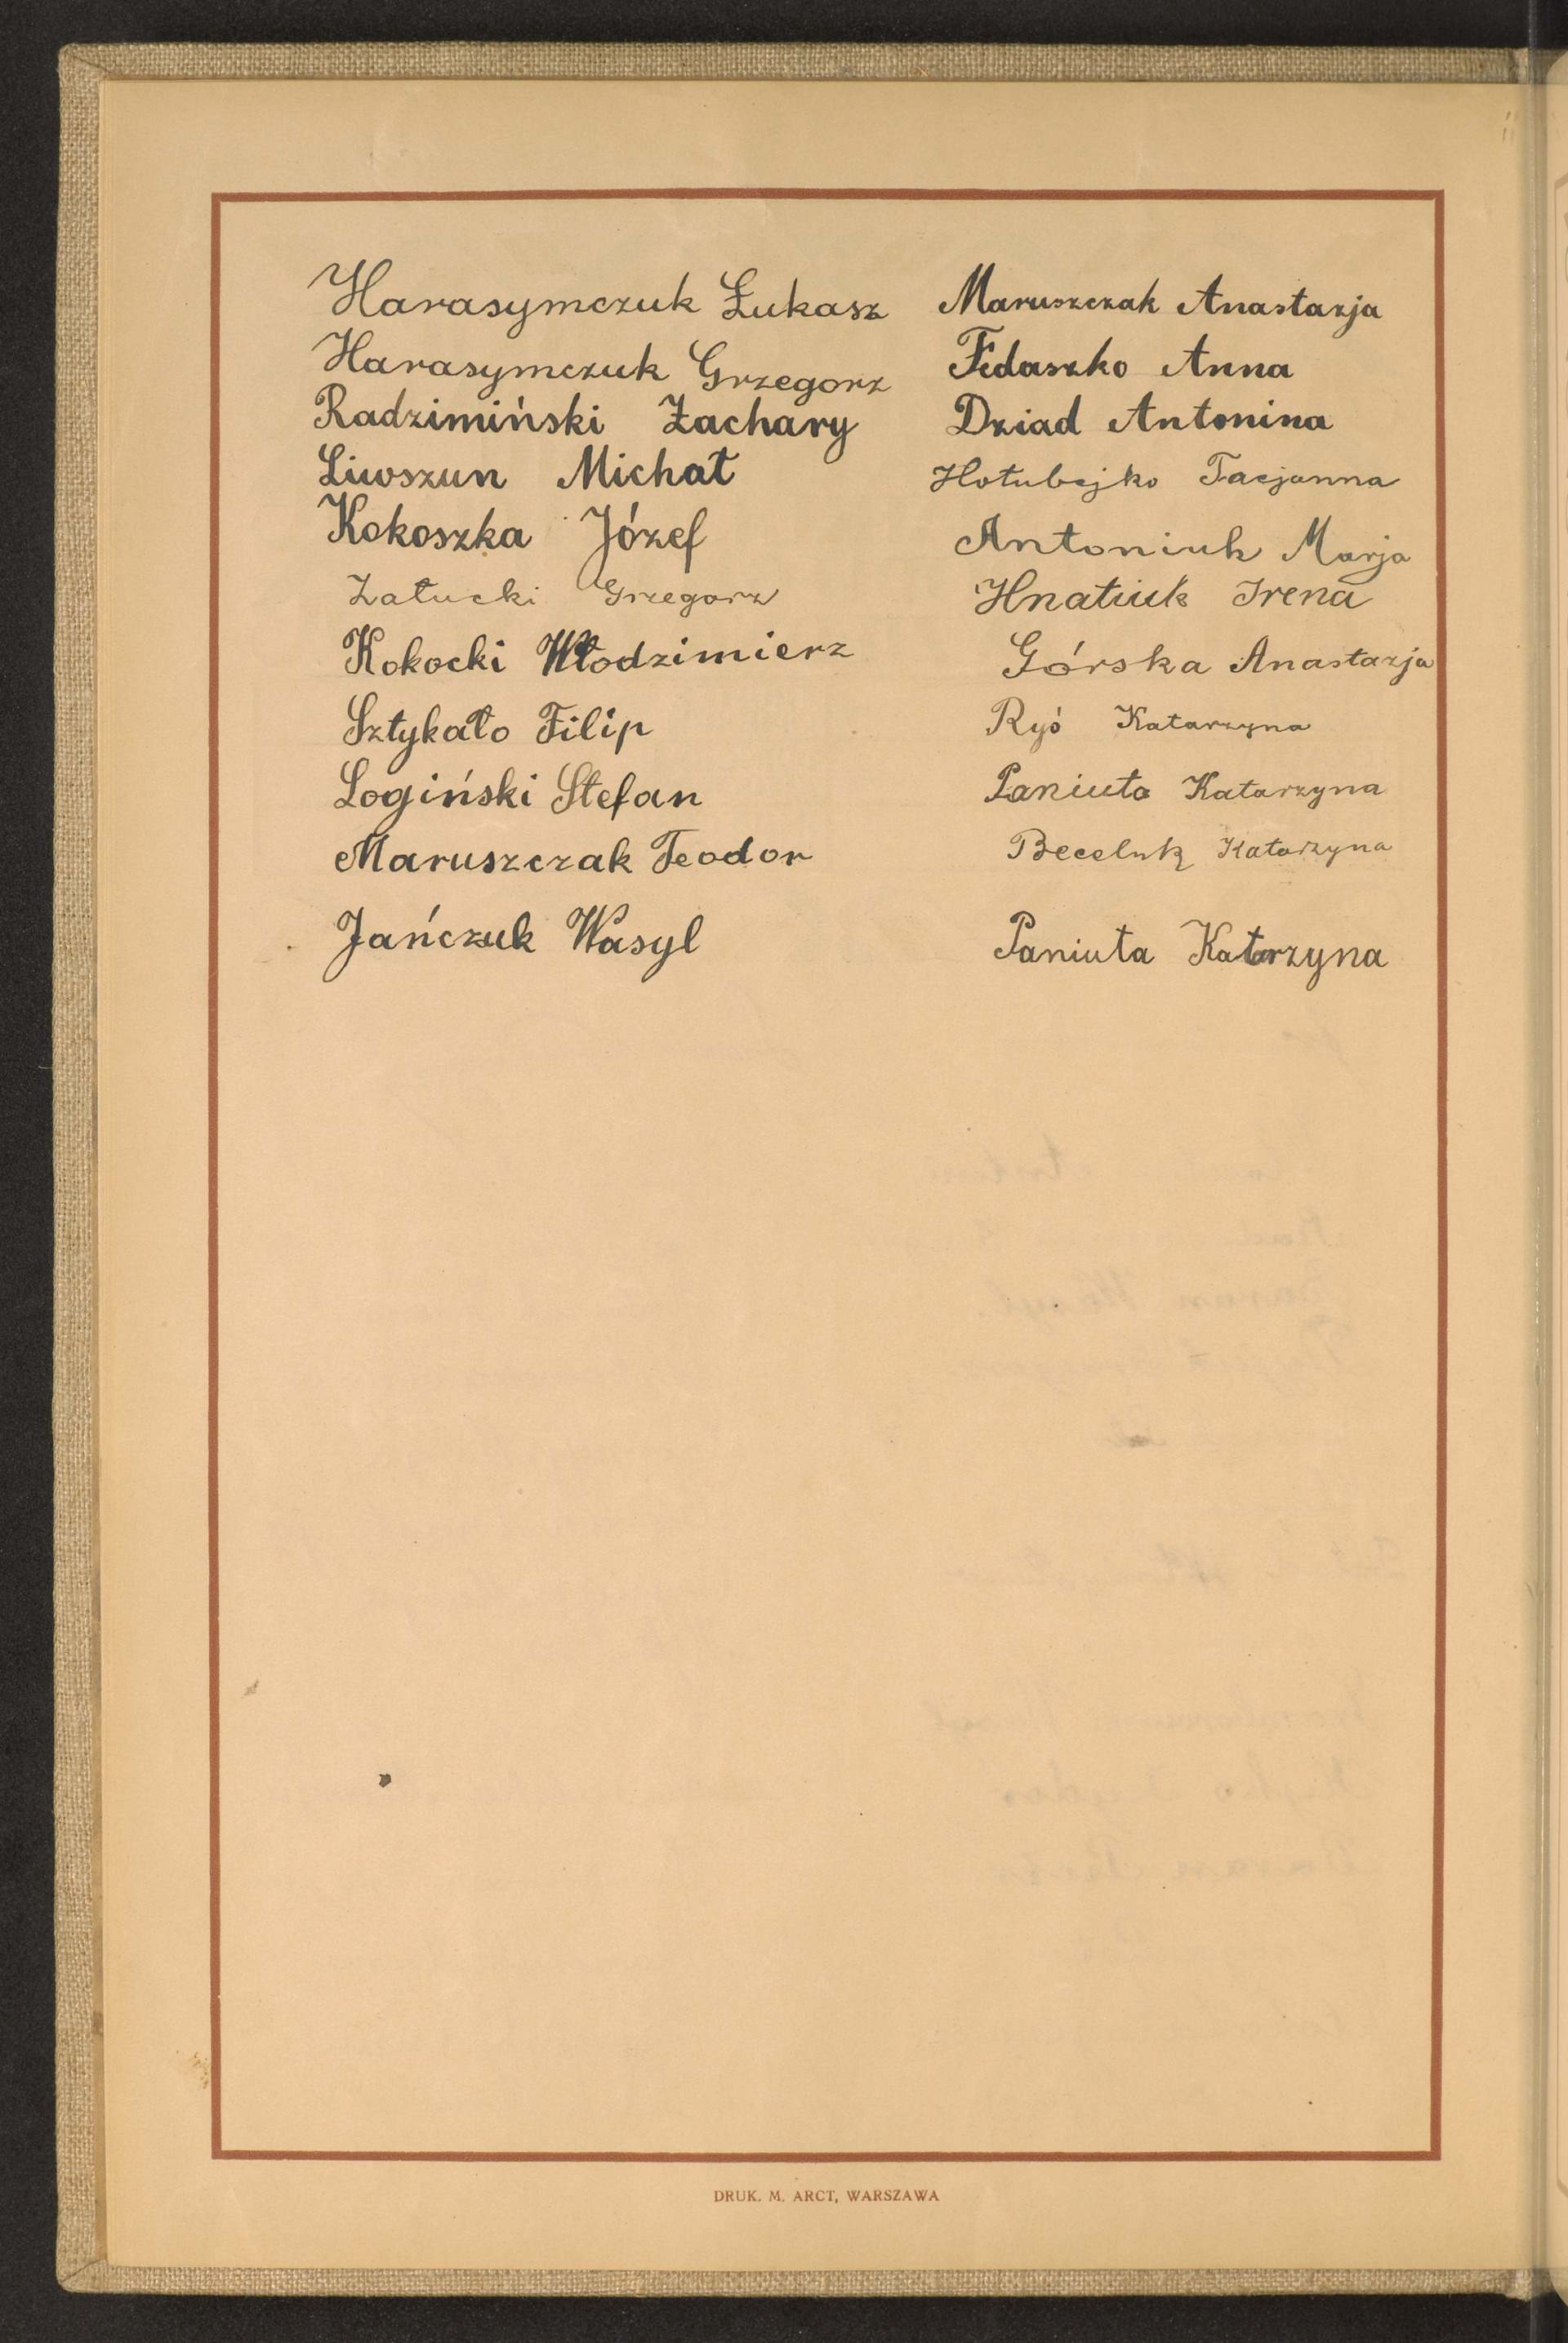 Harasymczuk Łukasz
Harasymczuk Grzegorz
Radzimiński Zachary
Liwszun Michał
Kokoszka Józef
Załucki Grzegorz
Kokocki Włodzimierz
Sztykało Filip
Łogiński Stefan
Maruszczak Teodor
Jańczuk Wasyl
Maruszczak Anastazja
Fedaszko Anna
Dziad Antonina
Hołubejko Tacjanna
Antoniuk Marja
Hnatiuk Irena
Górska Anastazja
Ryś Katarzyna
Paniuta Katarzyna
Katarzyna
Paniuta Katarzyna
DRUK. M. ARCT, WARSZAWA